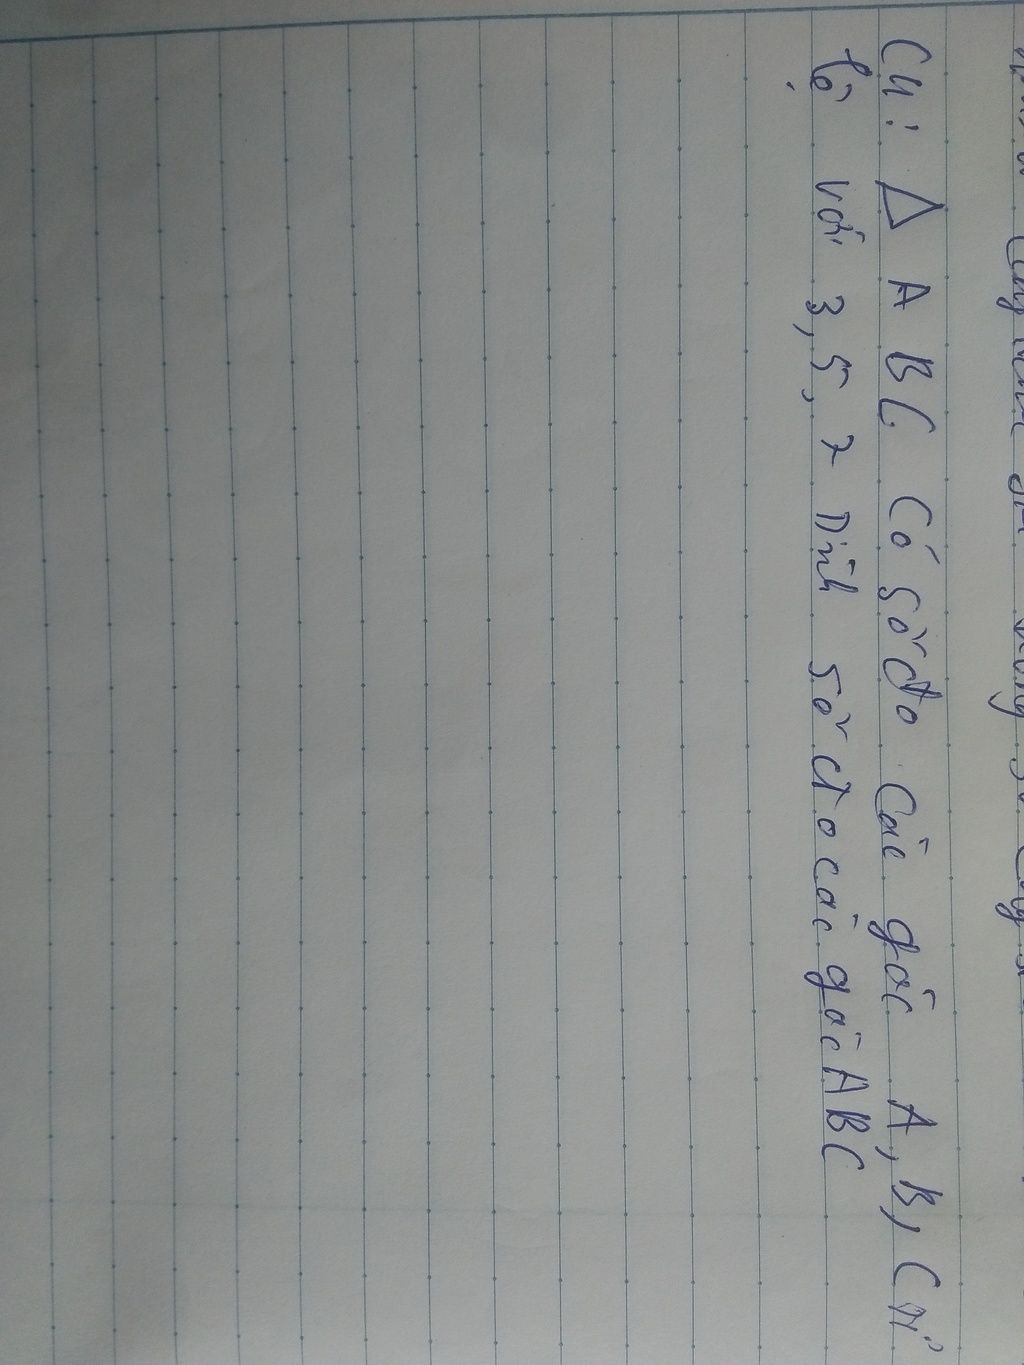 C4: Δ ABC Có số đo các góc A, B, C tỉ
lệ với 3, 5, 7 Tính số đo các góc ABC